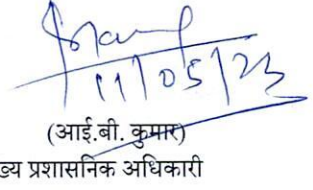 11/05/23
(आई.बी. कुमार)
ख्य प्रशासनिक अधिकारी